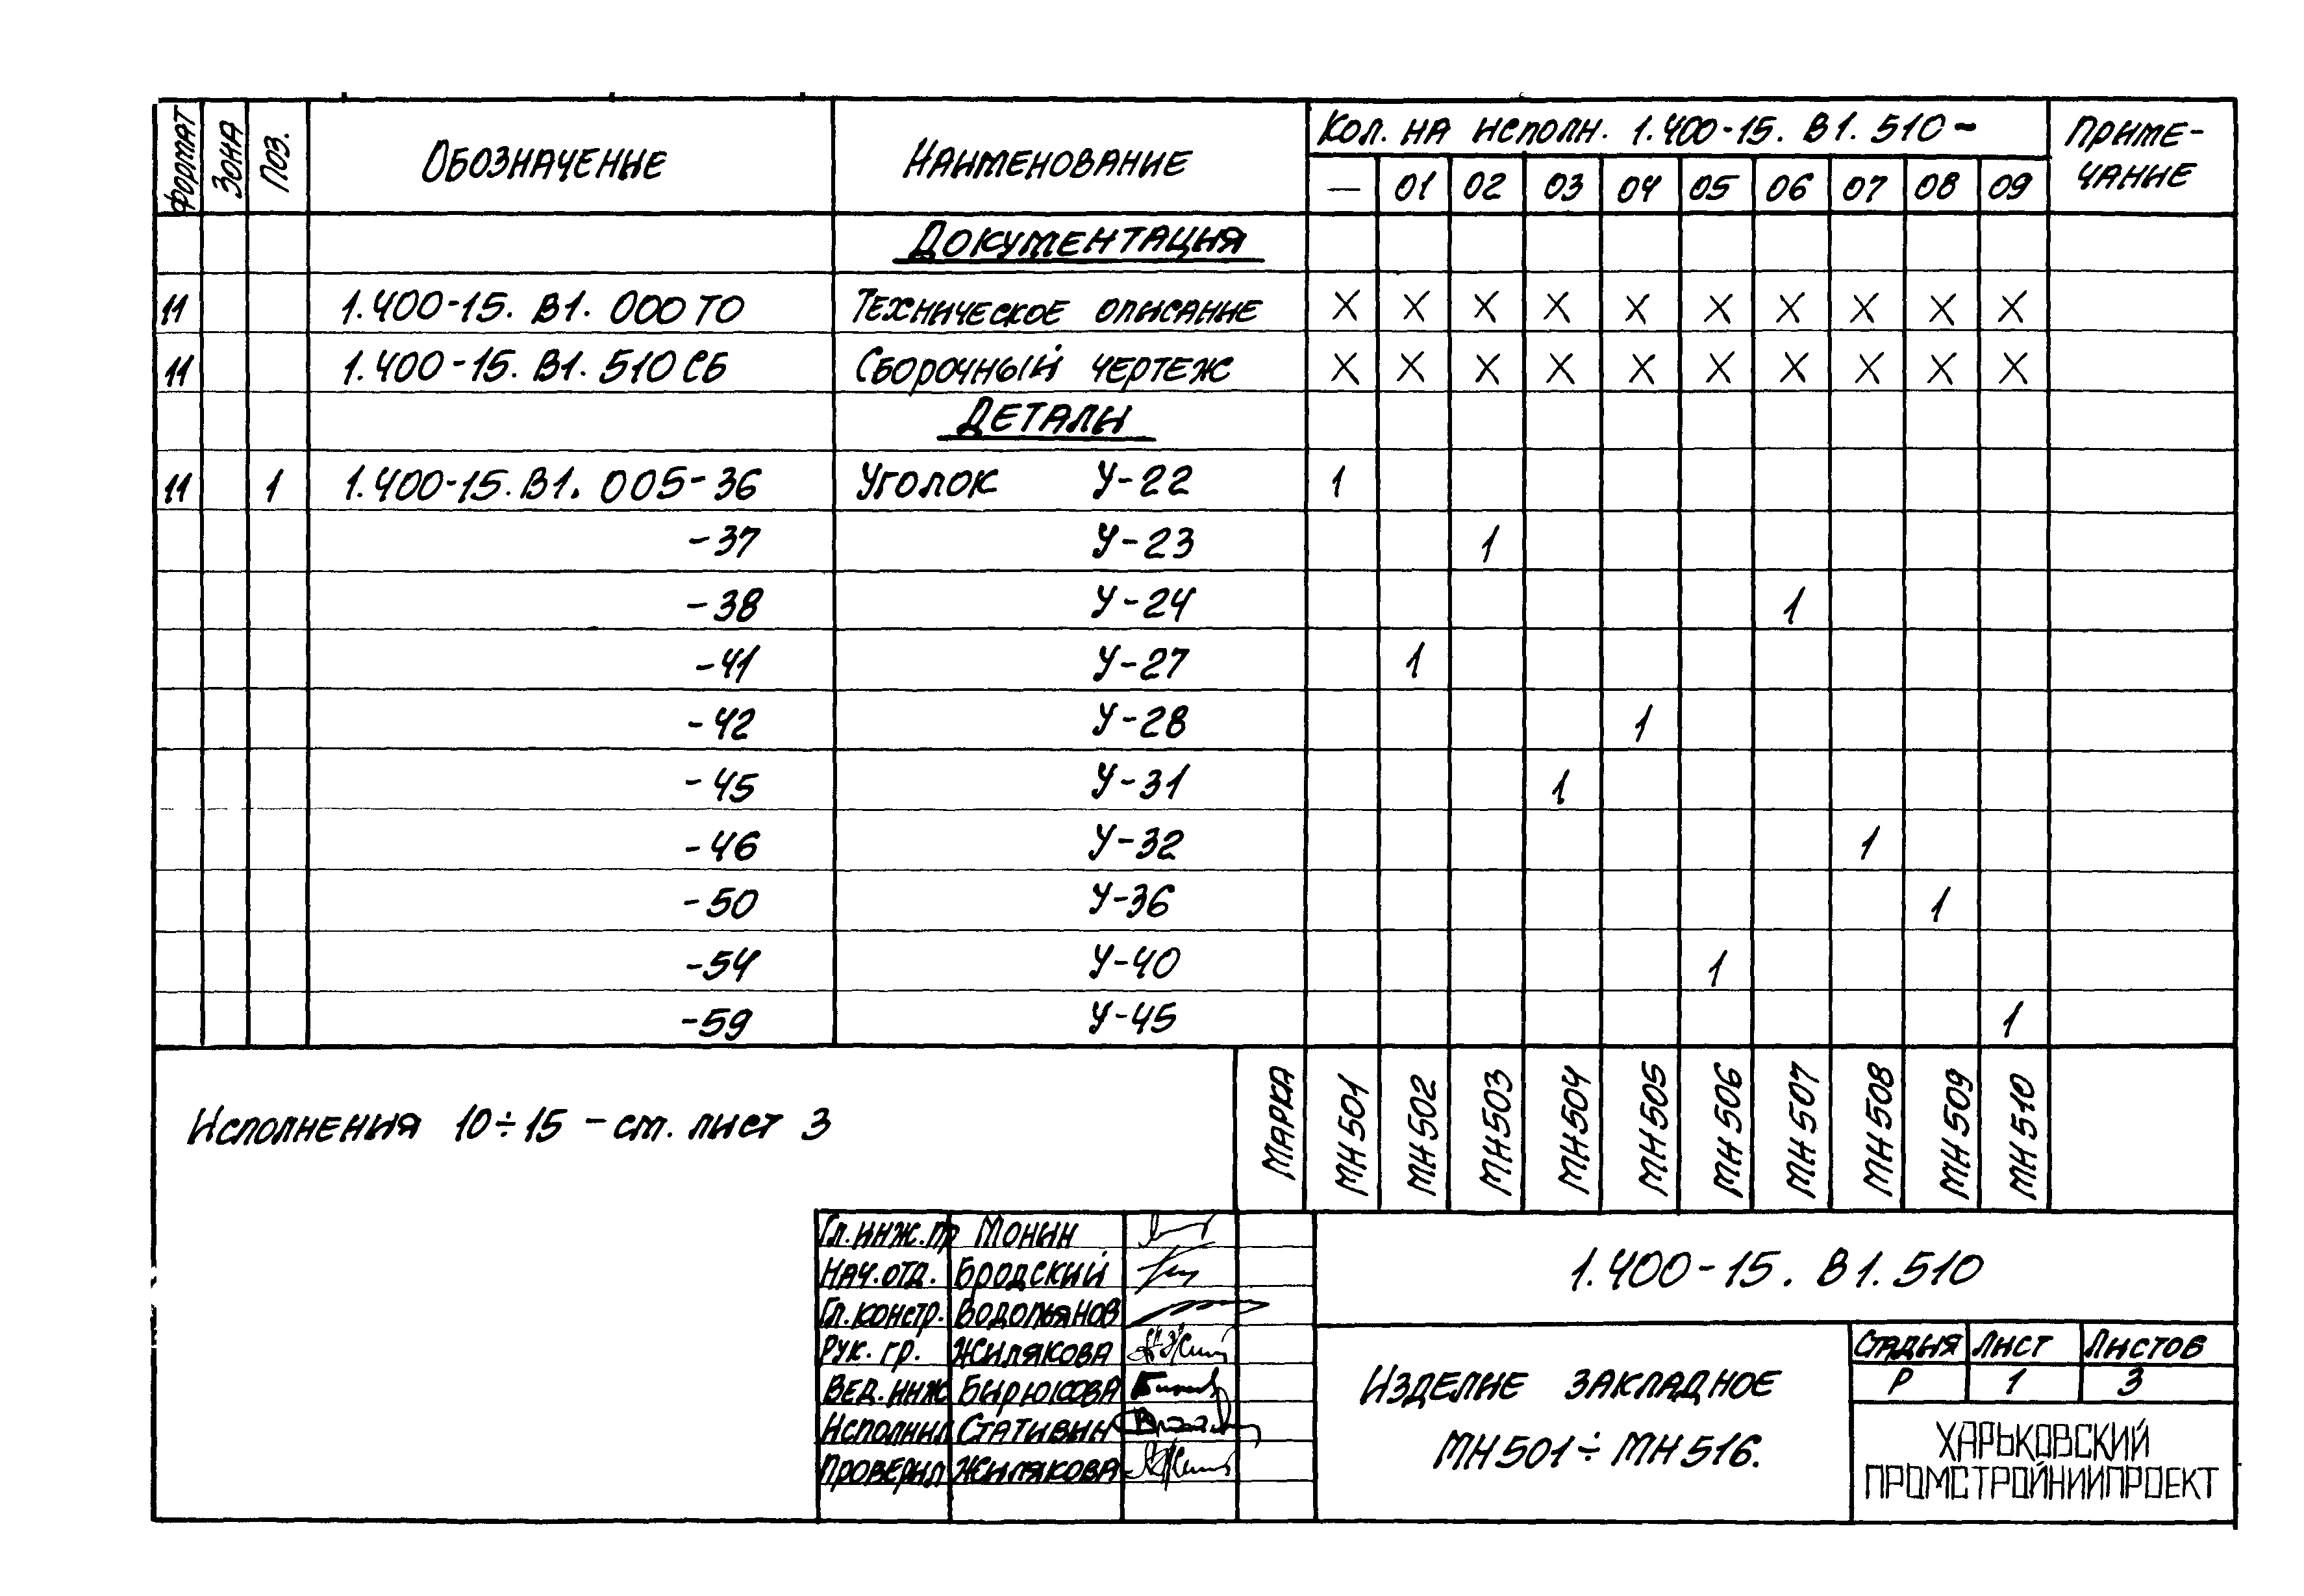 Формат Зона Поз. Обозначение Наименование Кол. на исполн. 1.400-15.В1.510- Приме-
чание
— 01 02 03 04 05 06 07 08 09
Документация
11 1.400-15.В1.000ТО Техническое описание X X X X X X X X X X
11 1.400-15.В1.510СБ Сборочный чертеж X X X X X X X X X X
Детали
11 1 1.400-15.В1.005-36 Уголок У-22 1
-37 У-23 1
-38 У-24 1
-41 У-27 1
-42 У-28 1
-45 У-31 1
-46 У-32 1
-50 У-36 1
-54 У-40 1
-59 У-45 1
Исполнения 10÷15 - см. лист 3
Марка МН501 МН502 МН503 МН504 МН505 МН506 МН507 МН508 МН509 МН510
Гл.инж.пр Монин
Нач.отд. Бродский
Гл.констр. Водопьянов
Рук. гр. Жилякова
Вед.инж Бирюкова
Исполнил Стативин
Проверил Жилякова
1.400-15.В1.510
Изделие закладное
МН501÷МН516.
Стадия Лист Листов
Р 1 3
ХАРЬКОВСКИЙ
ПРОМСТРОЙНИИПРОЕКТ